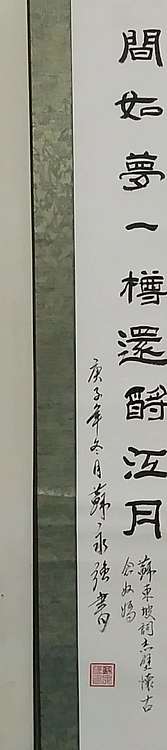 間如夢一樽還酹江月
蘇東坡詞赤壁懷古
念奴嬌
庚子年冬月蘇永強書